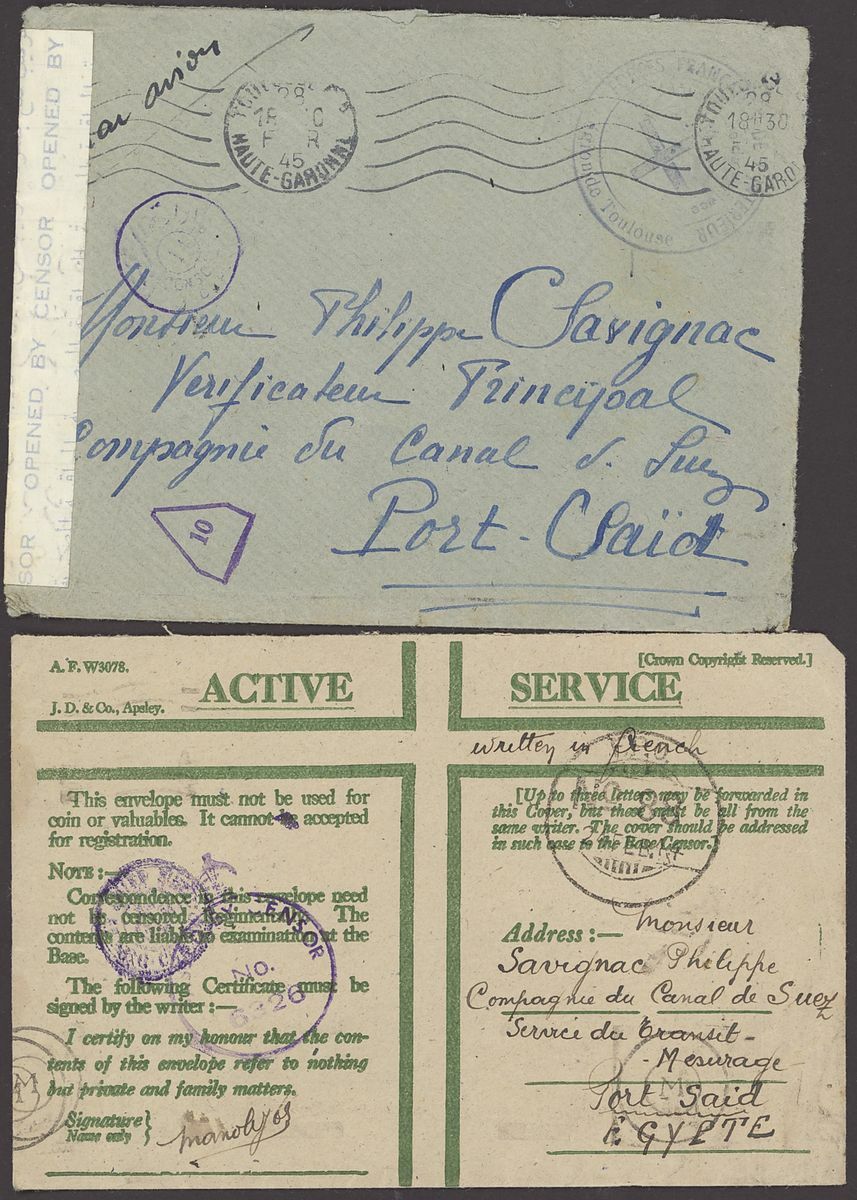 OPENED BY CENSOR OPENED BY
Par avion
28
18
45
HAUTE-GARONNE
18H30
45
HAUTE-GARO
de Toulouse
Monsieur Philippe Savignac
Verificateur Principal
Compagnie du Canal d. Suez
Port-Saïd
10
A. F. W3078.
[Crown Copyright Reserved.]
J. D. & Co., Apsley.
ACTIVE SERVICE
written in french
This envelope must not be used for
coin or valuables. It cannot be accepted
for registration.
NOTE:—
Correspondence in this envelope need
not be censored Regimentally. The
contents are liable to examination at the
Base.
The following Certificate must be
signed by the writer:—
I certify on my honour that the con-
tents of this envelope refer to nothing
but private and family matters.
Signature}
Name only
CENSOR
No.
6326
[Up to three letters may be forwarded in
this Cover, but these must be all from the
same writer. The cover should be addressed
in such case to the Base Censor.]
Address:— Monsieur
Savignac Philippe
Compagnie du Canal de Suez
Service du Transit-
- Mesurage -
Port Said
EGYPTE
M
M